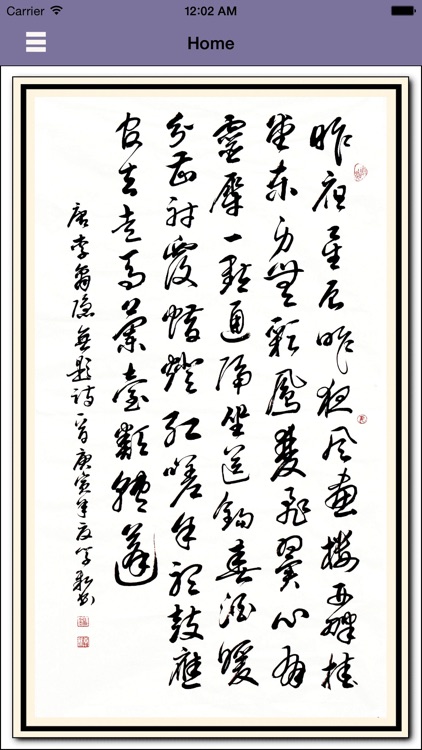 Carrier 12:02 AM
Home
昨夜星辰昨夜風畫樓西畔桂
堂東身無彩鳳雙飛翼心有
靈犀一點通隔坐送鉤春酒暖
分曹射覆蠟燈紅嗟余聽鼓應
官去走馬蘭臺類轉蓬
唐李商隱無題詩一首庚寅年夏